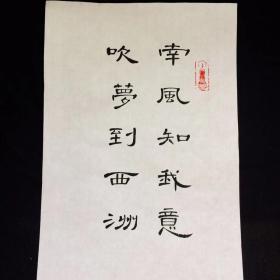 南風知我意
吹夢到西洲